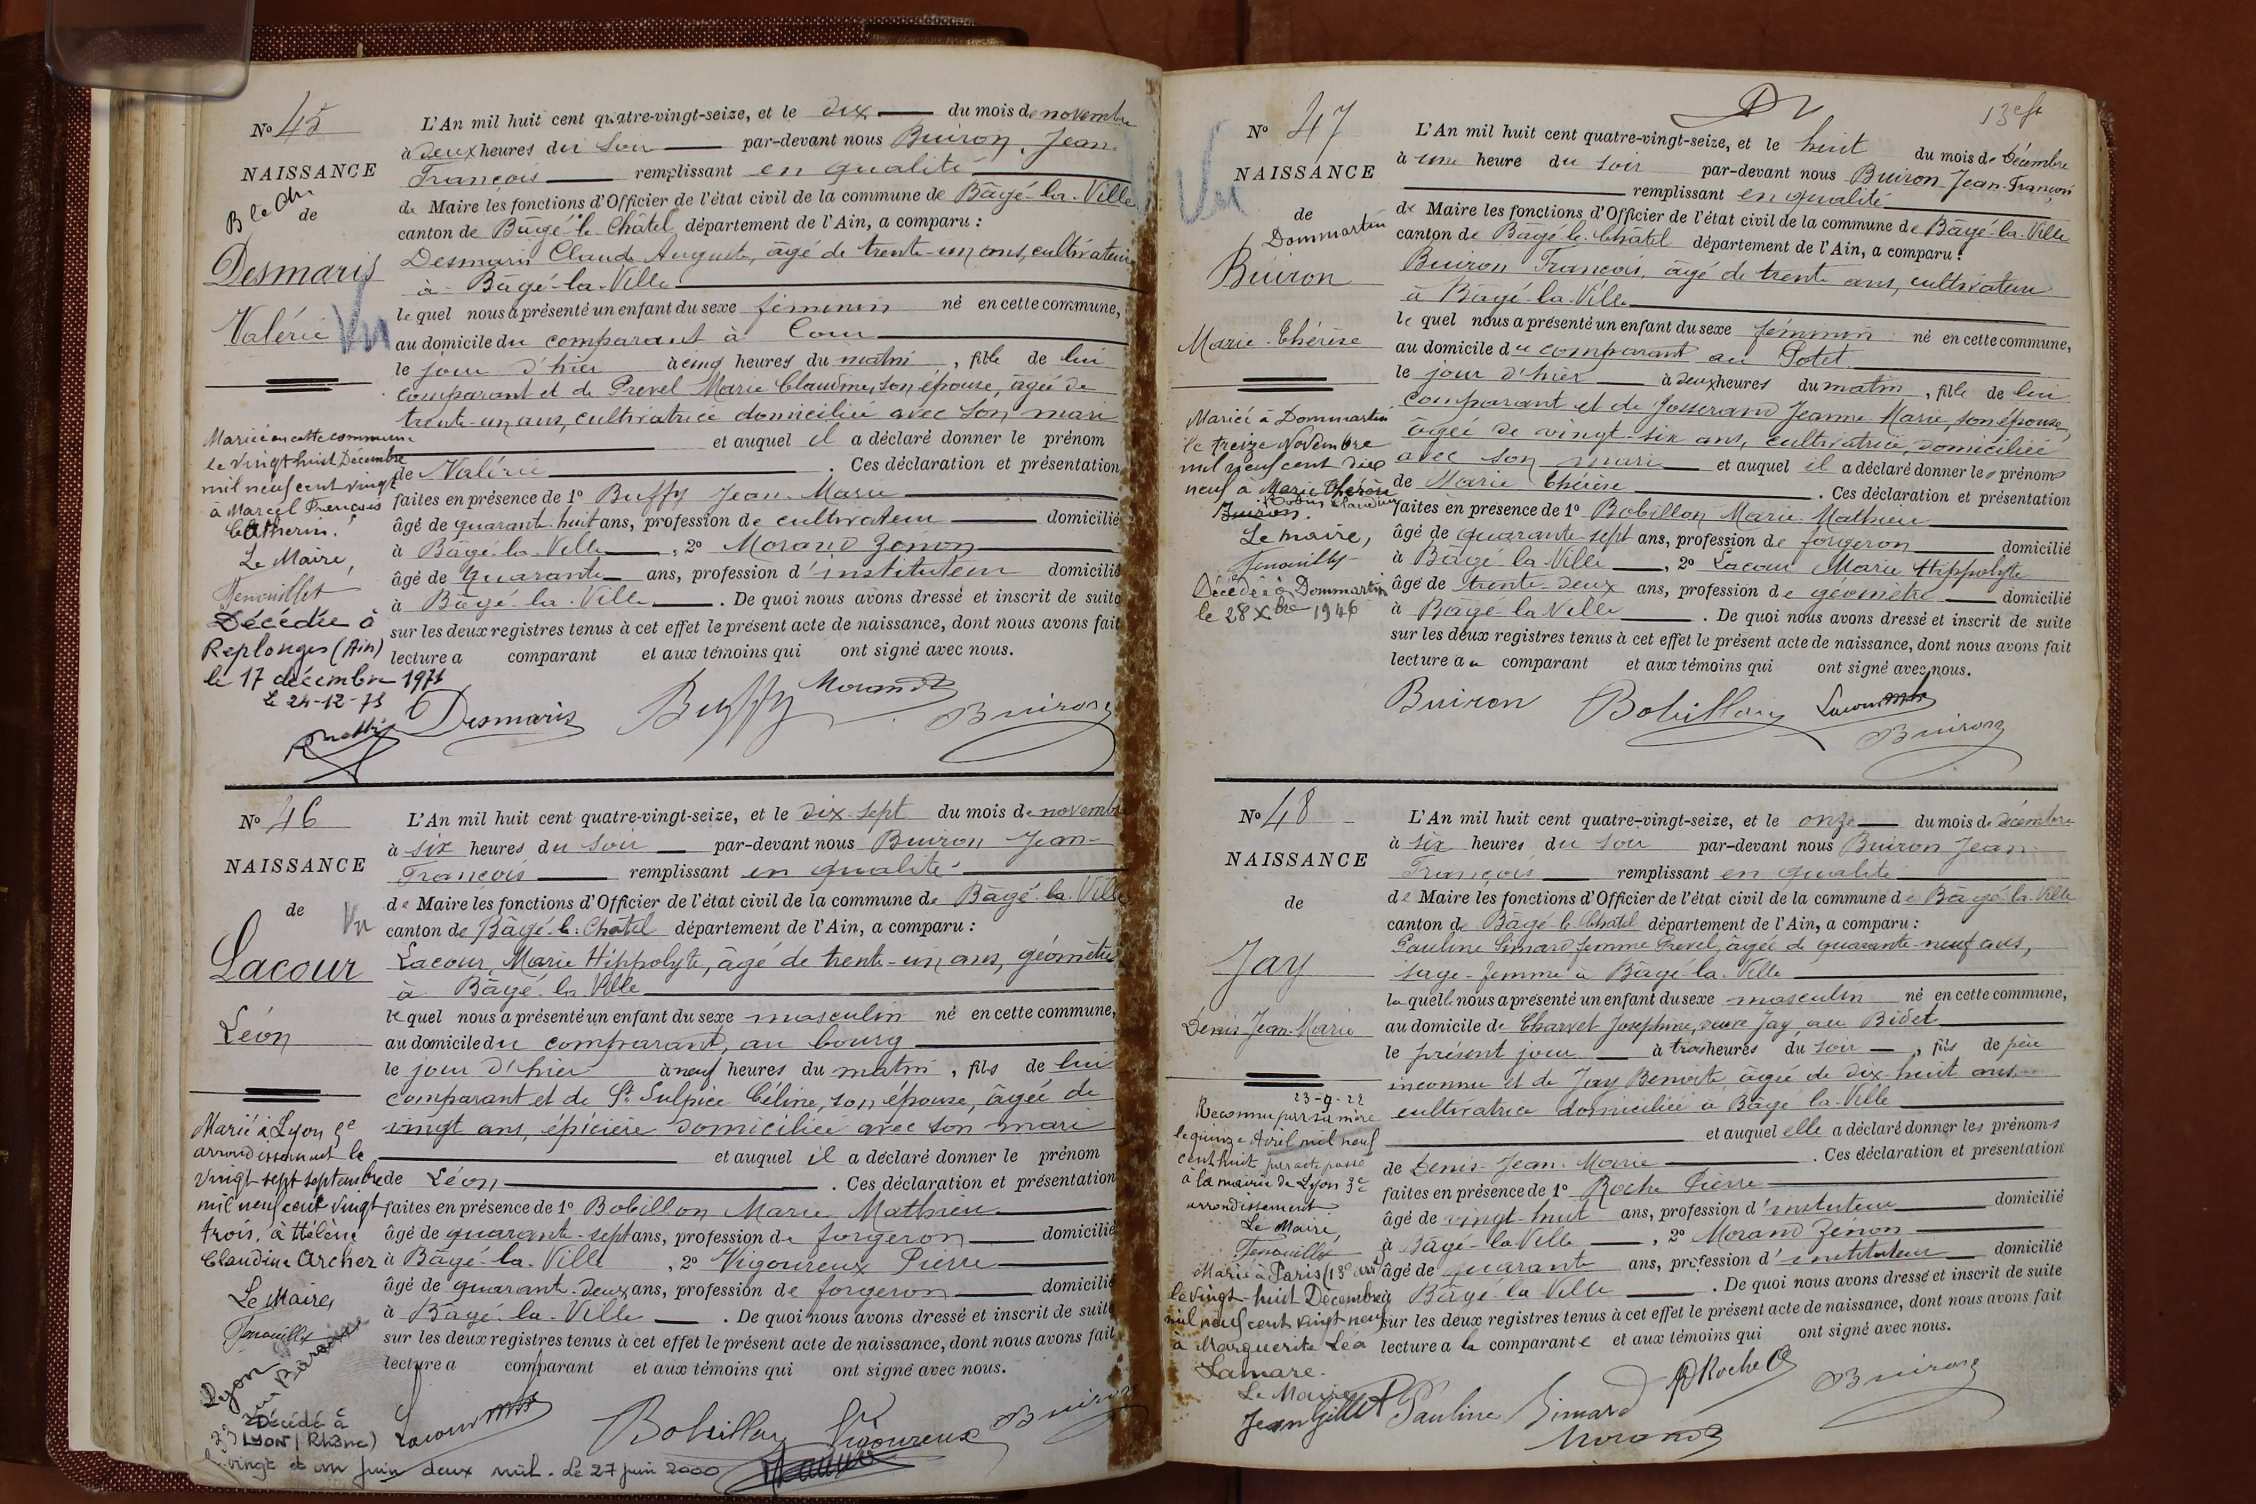 Nº 45
NAISSANCE
B le Ch
de
Desmaris
Valérie
Vu
Mariée en cette commune
le vingt huit Décembre
mil neuf cent vingt
à Marcel François
Catherin.
Le Maire,
Fenouillet
Décédée à
Replonges (Ain)
le 17 décembre 1971
Le 24-12-71
L'An mil huit cent quatre-vingt-seize, et le dix du mois de novembre
à deux heures du soir par-devant nous Buiron, Jean
François remplissant en qualité
de Maire les fonctions d'Officier de l'état civil de la commune de Bâgé-la-Ville
canton de Bâgé-le-Châtel département de l'Ain, a comparu :
Desmaris Claude Auguste, âgé de trente-un ans, cultivateur
à Bâgé-la-Ville
le quel nous a présenté un enfant du sexe féminin né en cette commune,
au domicile du comparant à Cour
le jour d'hier à cinq heures du matin, fille de lui
comparant et de Prevel Marie Claudine, son épouse, âgée de
trente-un ans, cultivatrice domiciliée avec son mari
et auquel il a déclaré donner le prénom
de Valérie. Ces déclaration et présentation
faites en présence de 1º Buffy Jean-Marie
âgé de quarante-huit ans, profession de cultivateur domicilié
à Bâgé-la-Ville, 2º Morand Zénon
âgé de quarante ans, profession d'instituteur domicilié
à Bâgé-la-Ville. De quoi nous avons dressé et inscrit de suite
sur les deux registres tenus à cet effet le présent acte de naissance, dont nous avons fait
lecture a comparant et aux témoins qui ont signé avec nous.
Desmaris Buffy Morand Buiron
Nº 46
NAISSANCE
de
Vu
Lacour
Léon
Marié à Lyon 5e
arrondissement le
vingt sept septembre
mil neuf cent vingt
trois, à Hélène
Claudine Archer
Le Maire,
Fenouillet
Décédé à
LYON (Rhône)
le vingt et un juin deux mil. Le 27 juin 2000
L'An mil huit cent quatre-vingt-seize, et le dix-sept du mois de novembre
à six heures du soir par-devant nous Buiron Jean-
François remplissant en qualité
de Maire les fonctions d'Officier de l'état civil de la commune de Bâgé-la-Ville
canton de Bâgé-le-Châtel département de l'Ain, a comparu :
Lacour, Marie Hippolyte, âgé de trente-un ans, géomètre
à Bâgé-la-Ville
le quel nous a présenté un enfant du sexe masculin né en cette commune,
au domicile du comparant, au bourg
le jour d'hier à neuf heures du matin, fils de lui
comparant et de St Sulpice Céline, son épouse, âgée de
vingt ans, épicière domiciliée avec son mari
et auquel il a déclaré donner le prénom
de Léon. Ces déclaration et présentation
faites en présence de 1º Bobillon Marie Mathieu
âgé de quarante-sept ans, profession de forgeron domicilié
à Bâgé-la-Ville, 2º Vigoureux Pierre
âgé de quarante-deux ans, profession de forgeron domicilié
à Bâgé-la-Ville. De quoi nous avons dressé et inscrit de suite
sur les deux registres tenus à cet effet le présent acte de naissance, dont nous avons fait
lecture a comparant et aux témoins qui ont signé avec nous.
Lacour Bobillon Vigoureux Buiron
13e ft
Nº 47
NAISSANCE
Vu
de
Dommartin
Buiron
Marie-Thérèse
Mariée à Dommartin
le treize Novembre
mil neuf cent dix
neuf à Marie Thérèse
Robin Claudius
Buiron.
Le maire,
Fenouillet
Décédée à Dommartin
le 28 Xbre 1946
L'An mil huit cent quatre-vingt-seize, et le huit du mois de Décembre
à une heure du soir par-devant nous Buiron Jean-François
remplissant en qualité
de Maire les fonctions d'Officier de l'état civil de la commune de Bâgé-la-Ville
canton de Bâgé-le-Châtel département de l'Ain, a comparu :
Buiron François, âgé de trente ans, cultivateur
à Bâgé-la-Ville
le quel nous a présenté un enfant du sexe féminin né en cette commune,
au domicile du comparant au Potet
le jour d'hier à deux heures du matin, fille de lui
comparant et de Josserand Jeanne Marie, son épouse,
âgée de vingt-six ans, cultivatrice, domiciliée
avec son mari et auquel il a déclaré donner les prénoms
de Marie Thérèse. Ces déclaration et présentation
faites en présence de 1º Bobillon Marie-Mathieu
âgé de quarante-sept ans, profession de forgeron domicilié
à Bâgé-la-Ville, 2º Lacour Marie Hippolyte
âgé de trente-deux ans, profession de géomètre domicilié
à Bâgé-la-Ville. De quoi nous avons dressé et inscrit de suite
sur les deux registres tenus à cet effet le présent acte de naissance, dont nous avons fait
lecture au comparant et aux témoins qui ont signé avec nous.
Buiron Bobillon Lacour Buiron
Nº 48
NAISSANCE
de
Jay
Denis-Jean-Marie
23-9-22
Reconnu par sa mère
le quinze Avril mil neuf
cent huit par acte passé
à la mairie de Lyon 3e
arrondissement
Le Maire
Fenouillet
Marié à Paris (13e arrt)
le vingt huit Décembre
mil neuf cent vingt neuf
à Marguerite Léa
Lamare.
Le Maire
Jean Gillet
L'An mil huit cent quatre-vingt-seize, et le onze du mois de décembre
à six heures du soir par-devant nous Buiron Jean
François remplissant en qualité
de Maire les fonctions d'Officier de l'état civil de la commune de Bâgé-la-Ville
canton de Bâgé-le-Châtel département de l'Ain, a comparu :
Pauline Simard femme Prevel, âgée de quarante-neuf ans,
sage-femme à Bâgé-la-Ville
la quelle nous a présenté un enfant du sexe masculin né en cette commune,
au domicile de Charvet Josephine, veuve Jay, au Bidet
le présent jour à trois heures du soir, fils de père
inconnu et de Jay Benoîte âgée de dix-huit ans
cultivatrice domiciliée à Bâgé-la-Ville
et auquel elle a déclaré donner les prénoms
de Denis-Jean-Marie. Ces déclaration et présentation
faites en présence de 1º Roche Pierre
âgé de vingt-huit ans, profession d'instituteur domicilié
à Bâgé-la-Ville, 2º Morand Zénon
âgé de quarante ans, profession d'instituteur domicilié
à Bâgé-la-Ville. De quoi nous avons dressé et inscrit de suite
sur les deux registres tenus à cet effet le présent acte de naissance, dont nous avons fait
lecture a la comparante et aux témoins qui ont signé avec nous.
Pauline Simard Roche Buiron
Morand